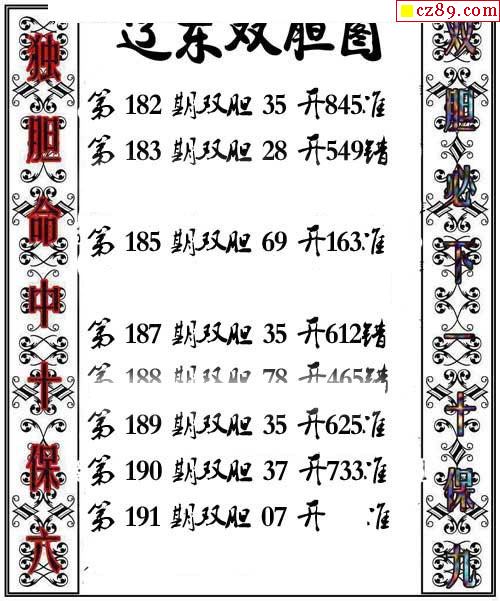 cz89.com
辽东双胆图
独胆命中十保六
第 182 期双胆 35 开845准
第 183 期双胆 28 开549错
第 185 期双胆 69 开163准
第 187 期双胆 35 开612错
第 188 期双胆 78 开465错
第 189 期双胆 35 开625准
第 190 期双胆 37 开733准
第 191 期双胆 07 开 准
双胆必下一十保九